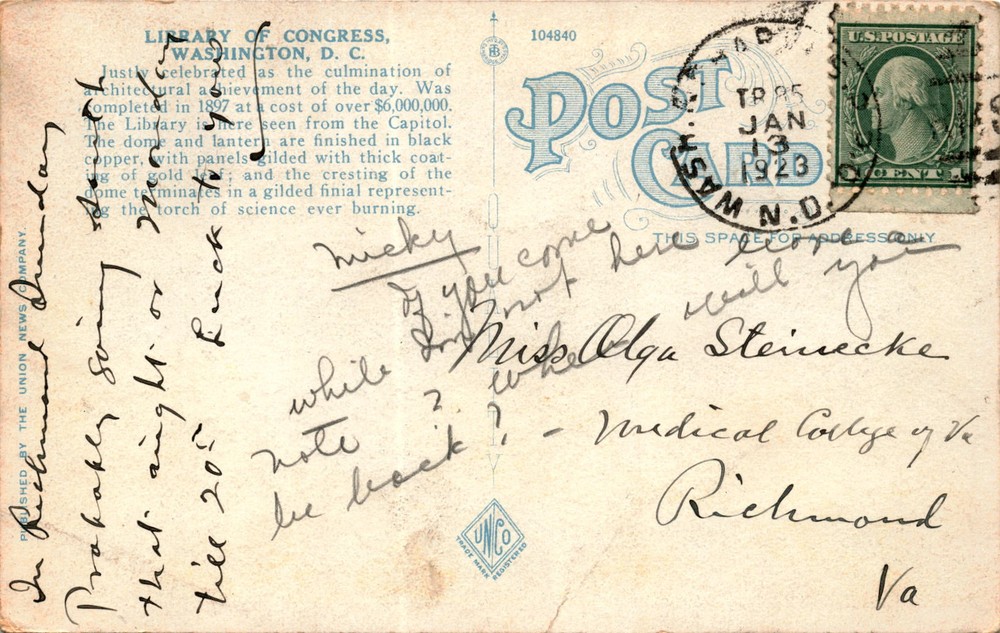 LIBRARY OF CONGRESS,
WASHINGTON, D. C.
Justly celebrated as the culmination of
architectural achievement of the day. Was
completed in 1897 at a cost of over $6,000,000.
The Library is here seen from the Capitol.
The dome and lantern are finished in black
copper, with panels gilded with thick coat-
ing of gold leaf; and the cresting of the
dome terminates in a gilded finial represent-
ing the torch of science ever burning.
104840
POST
CARD
THIS SPACE FOR ADDRESS ONLY
U.S. POSTAGE
1 CENT 1
WASH. D.C.
JAN
13
1923
N.D.
PUBLISHED BY THE UNION NEWS COMPANY.
In Richmond Sunday
Probably going South
that night or Monday
till 20th Luck to you
Micky
If you come
while I'm not here leave a
note? When will you
be back? -
Miss Olga Steinecke
Medical College of Va
Richmond
Va
UNCO
TRADE MARK REGISTERED